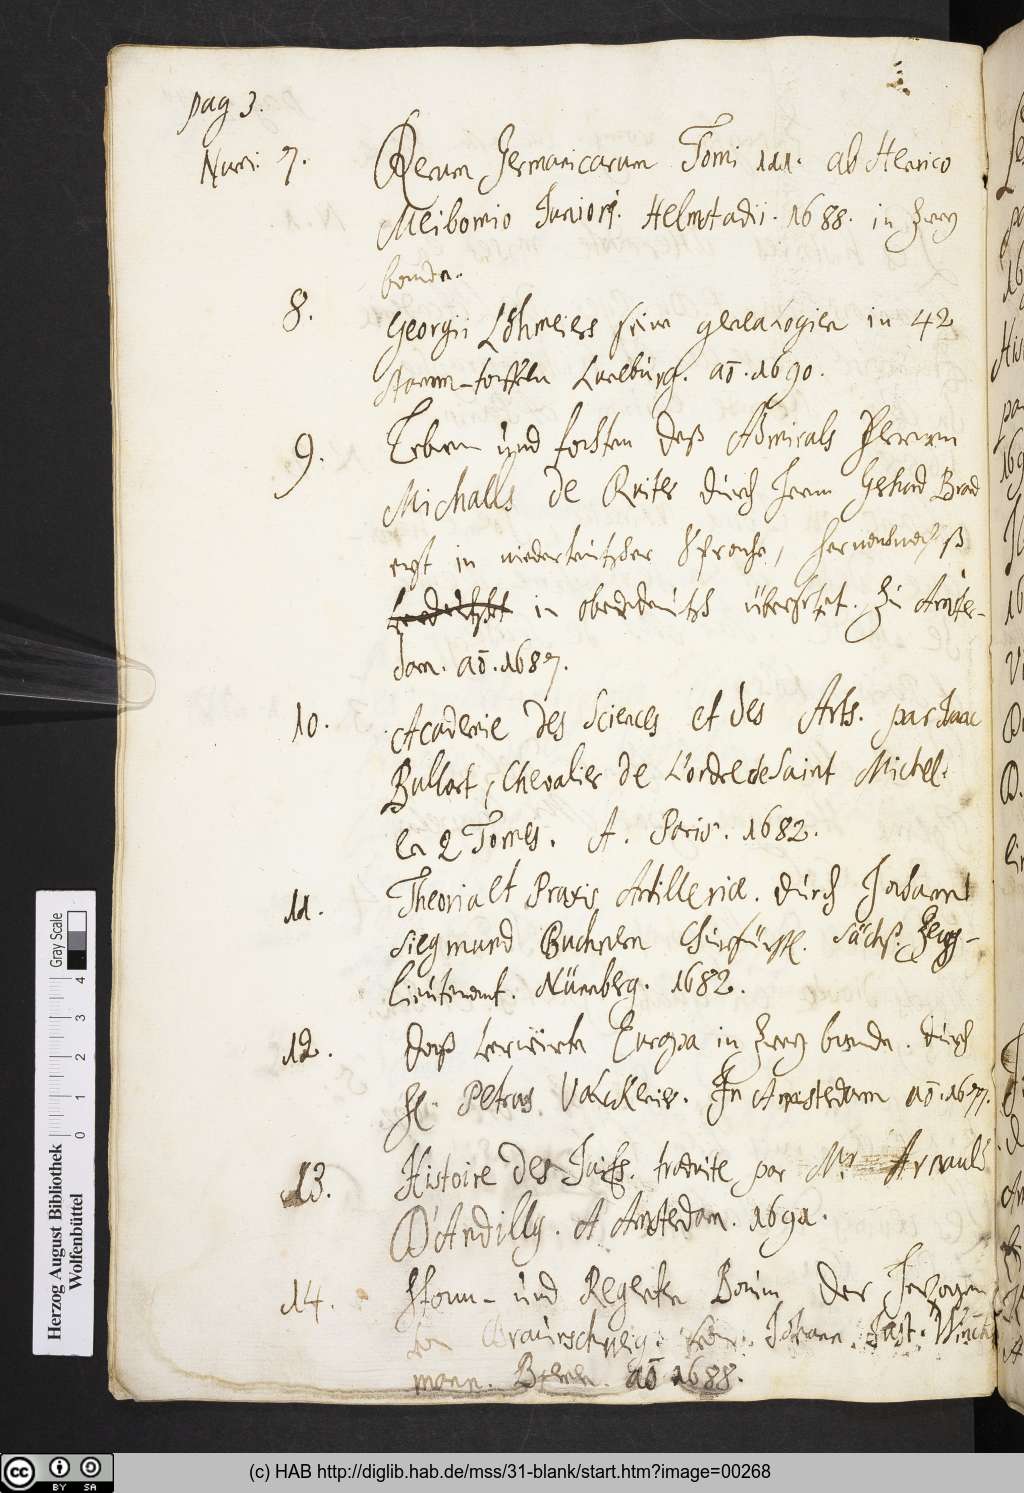 pag 3.
Num: 7. Rerum Germanicarum Tomi 111. ab Henrico
Meibomio Juniori. Helmstadii. 1688. in zwey
bende.
8. Georgii Löhmeiers genealogien in 42
Stamm-taffeln Luneburg. aō. 1690.
9. Leben und tachten deß Admirals Herren
Michaells de Ruiter durch Gerhard Brand
erst in niederteutscher Sprache,
in oberdeutsch übersetzet. Zu Amster-
dam. aō. 1687.
10. Academie des Sciences et des Arts. par Isaac
Bullart, Chevalier de L'ordre de Saint Michel.
en 2 Tomes. A. Paris. 1682.
11. Theoria et Praxis Artilleriæ. durch Johann
Siegmund Buchnern Churfürstl. Sächß. Zeug-
lieutenant. Nürnberg. 1682.
12. Daß verwirte Europa in zwey bende. durch
H. Petrus Valckenier. In Amsterdam aō. 1677.
13. Histoire des Juifs. traduite par Mr. Arnauld
D'Andilly. A Amsterdam. 1691.
14. Stam- und Regenten Baum Der Herzogen
von Braunschweig. von Johann Just. Winckel
mann. Bremen. aō 1688.
Herzog August Bibliothek
Wolfenbüttel
0 1 2 3 4
Gray Scale
cc BY SA
(c) HAB http://diglib.hab.de/mss/31-blank/start.htm?image=00268